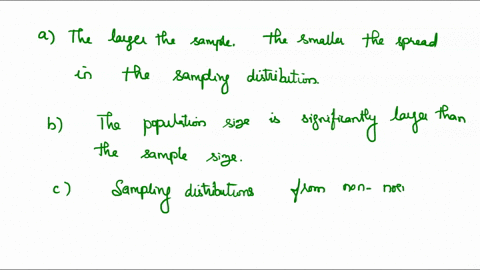 a) The larger the sample. the smaller the spread
in the sampling distribution.
b) The population size is significantly larger than
the sample size.
c) Sampling distributions from non-